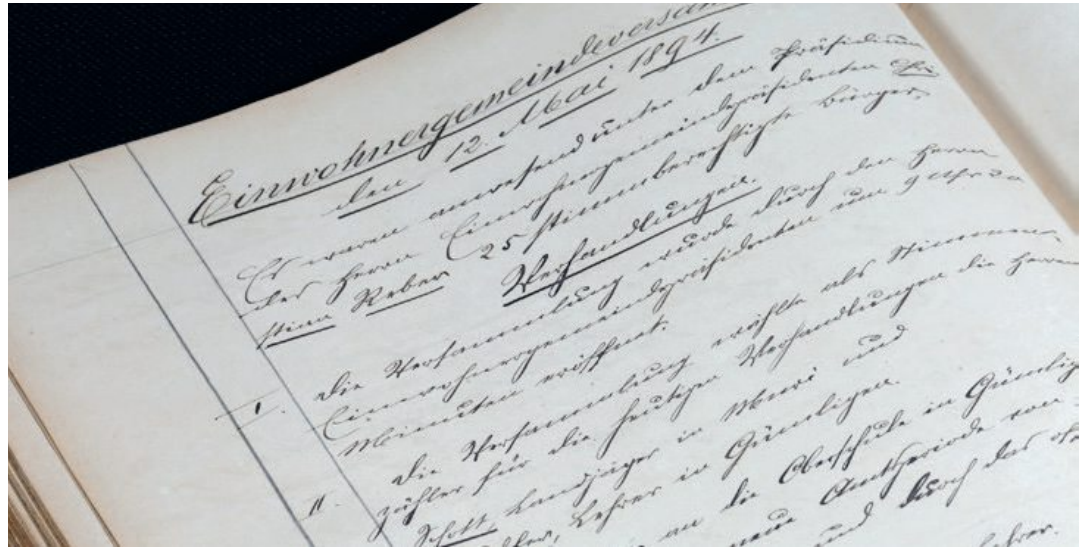 Einwohnergemeindeversam
den 12. Mai 1894.
Es waren anwesend unter dem Präsidium
des Herrn Einwohnergemeindepräsidenten Chri
stian Reber 25 stimmberechtigte Bürger.
Verhandlungen.
Die Versammlung wurde durch den Herrn
Einwohnergemeindepräsidenten um 9 Uhr
Minuten eröffnet.
I. Die Versammlung wählte als Stimmen-
zähler für die heutigen Verhandlungen die Herren
Schott, Landjäger in Muri und
Lehrer in Gümligen.
II. an die Oberschule in Gümlig
neue Amtsperiode von
und durch das
Lehrer.